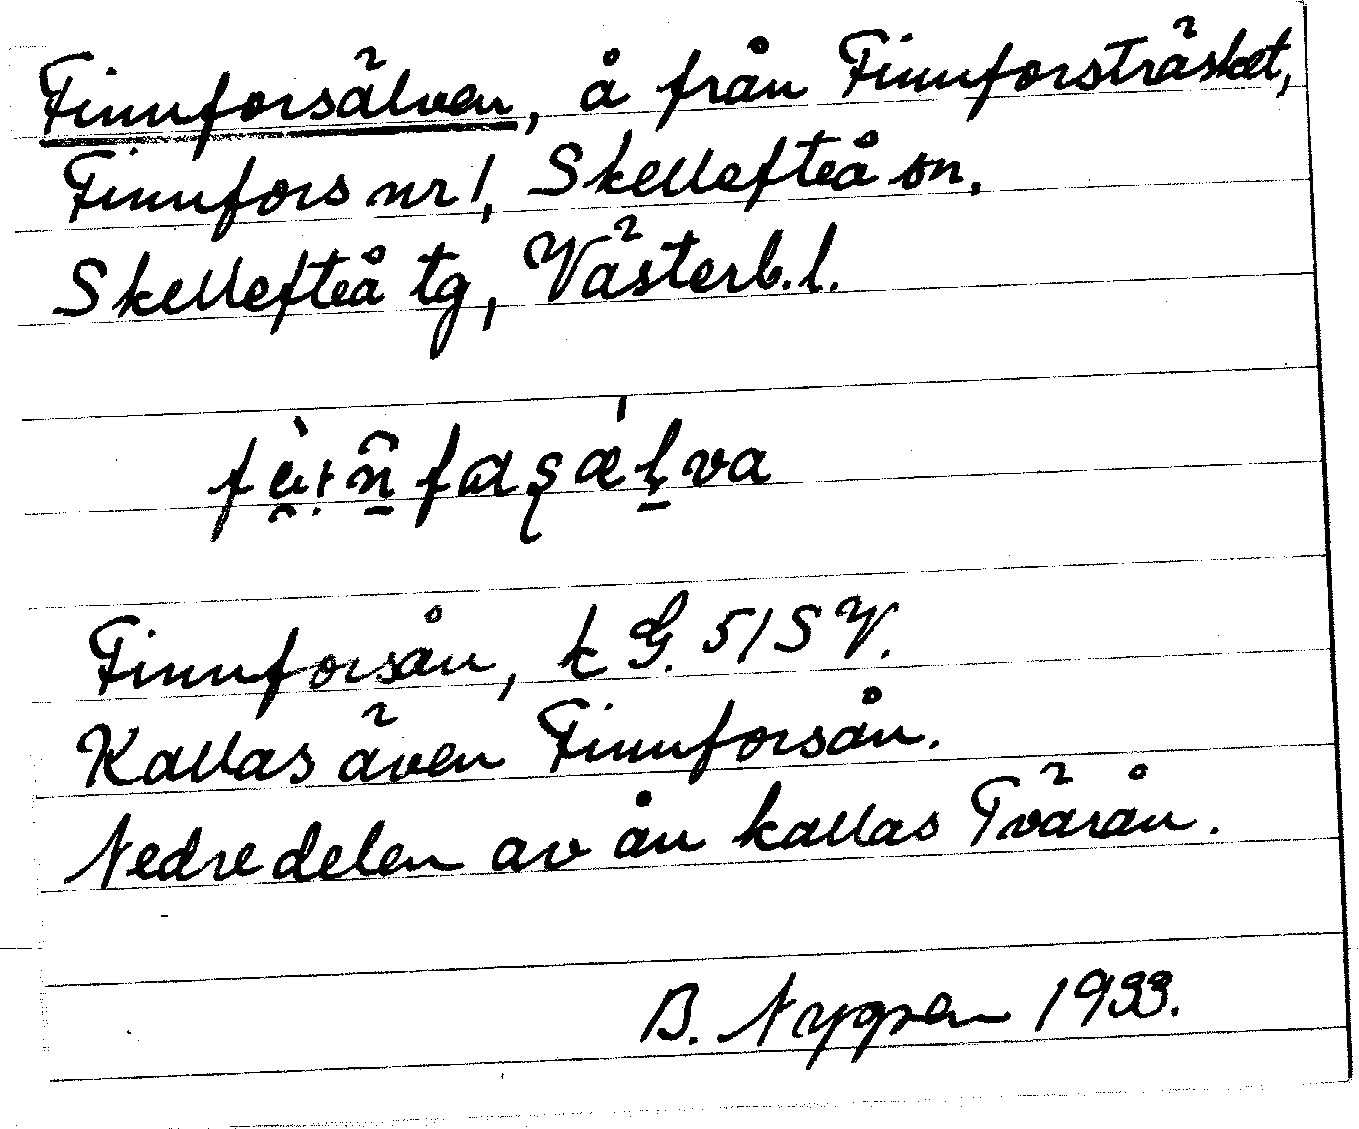 Finnforsälven, å från Finnforsträsket,
Finnfors nr 1, Skellefteå sn,
Skellefteå tg, Västerb.l.
Finnforsån, k G. 51 S V.
Kallas även Finnforsån.
Nedre delen av ån kallas Tvärån.
B. Nygren 1933.